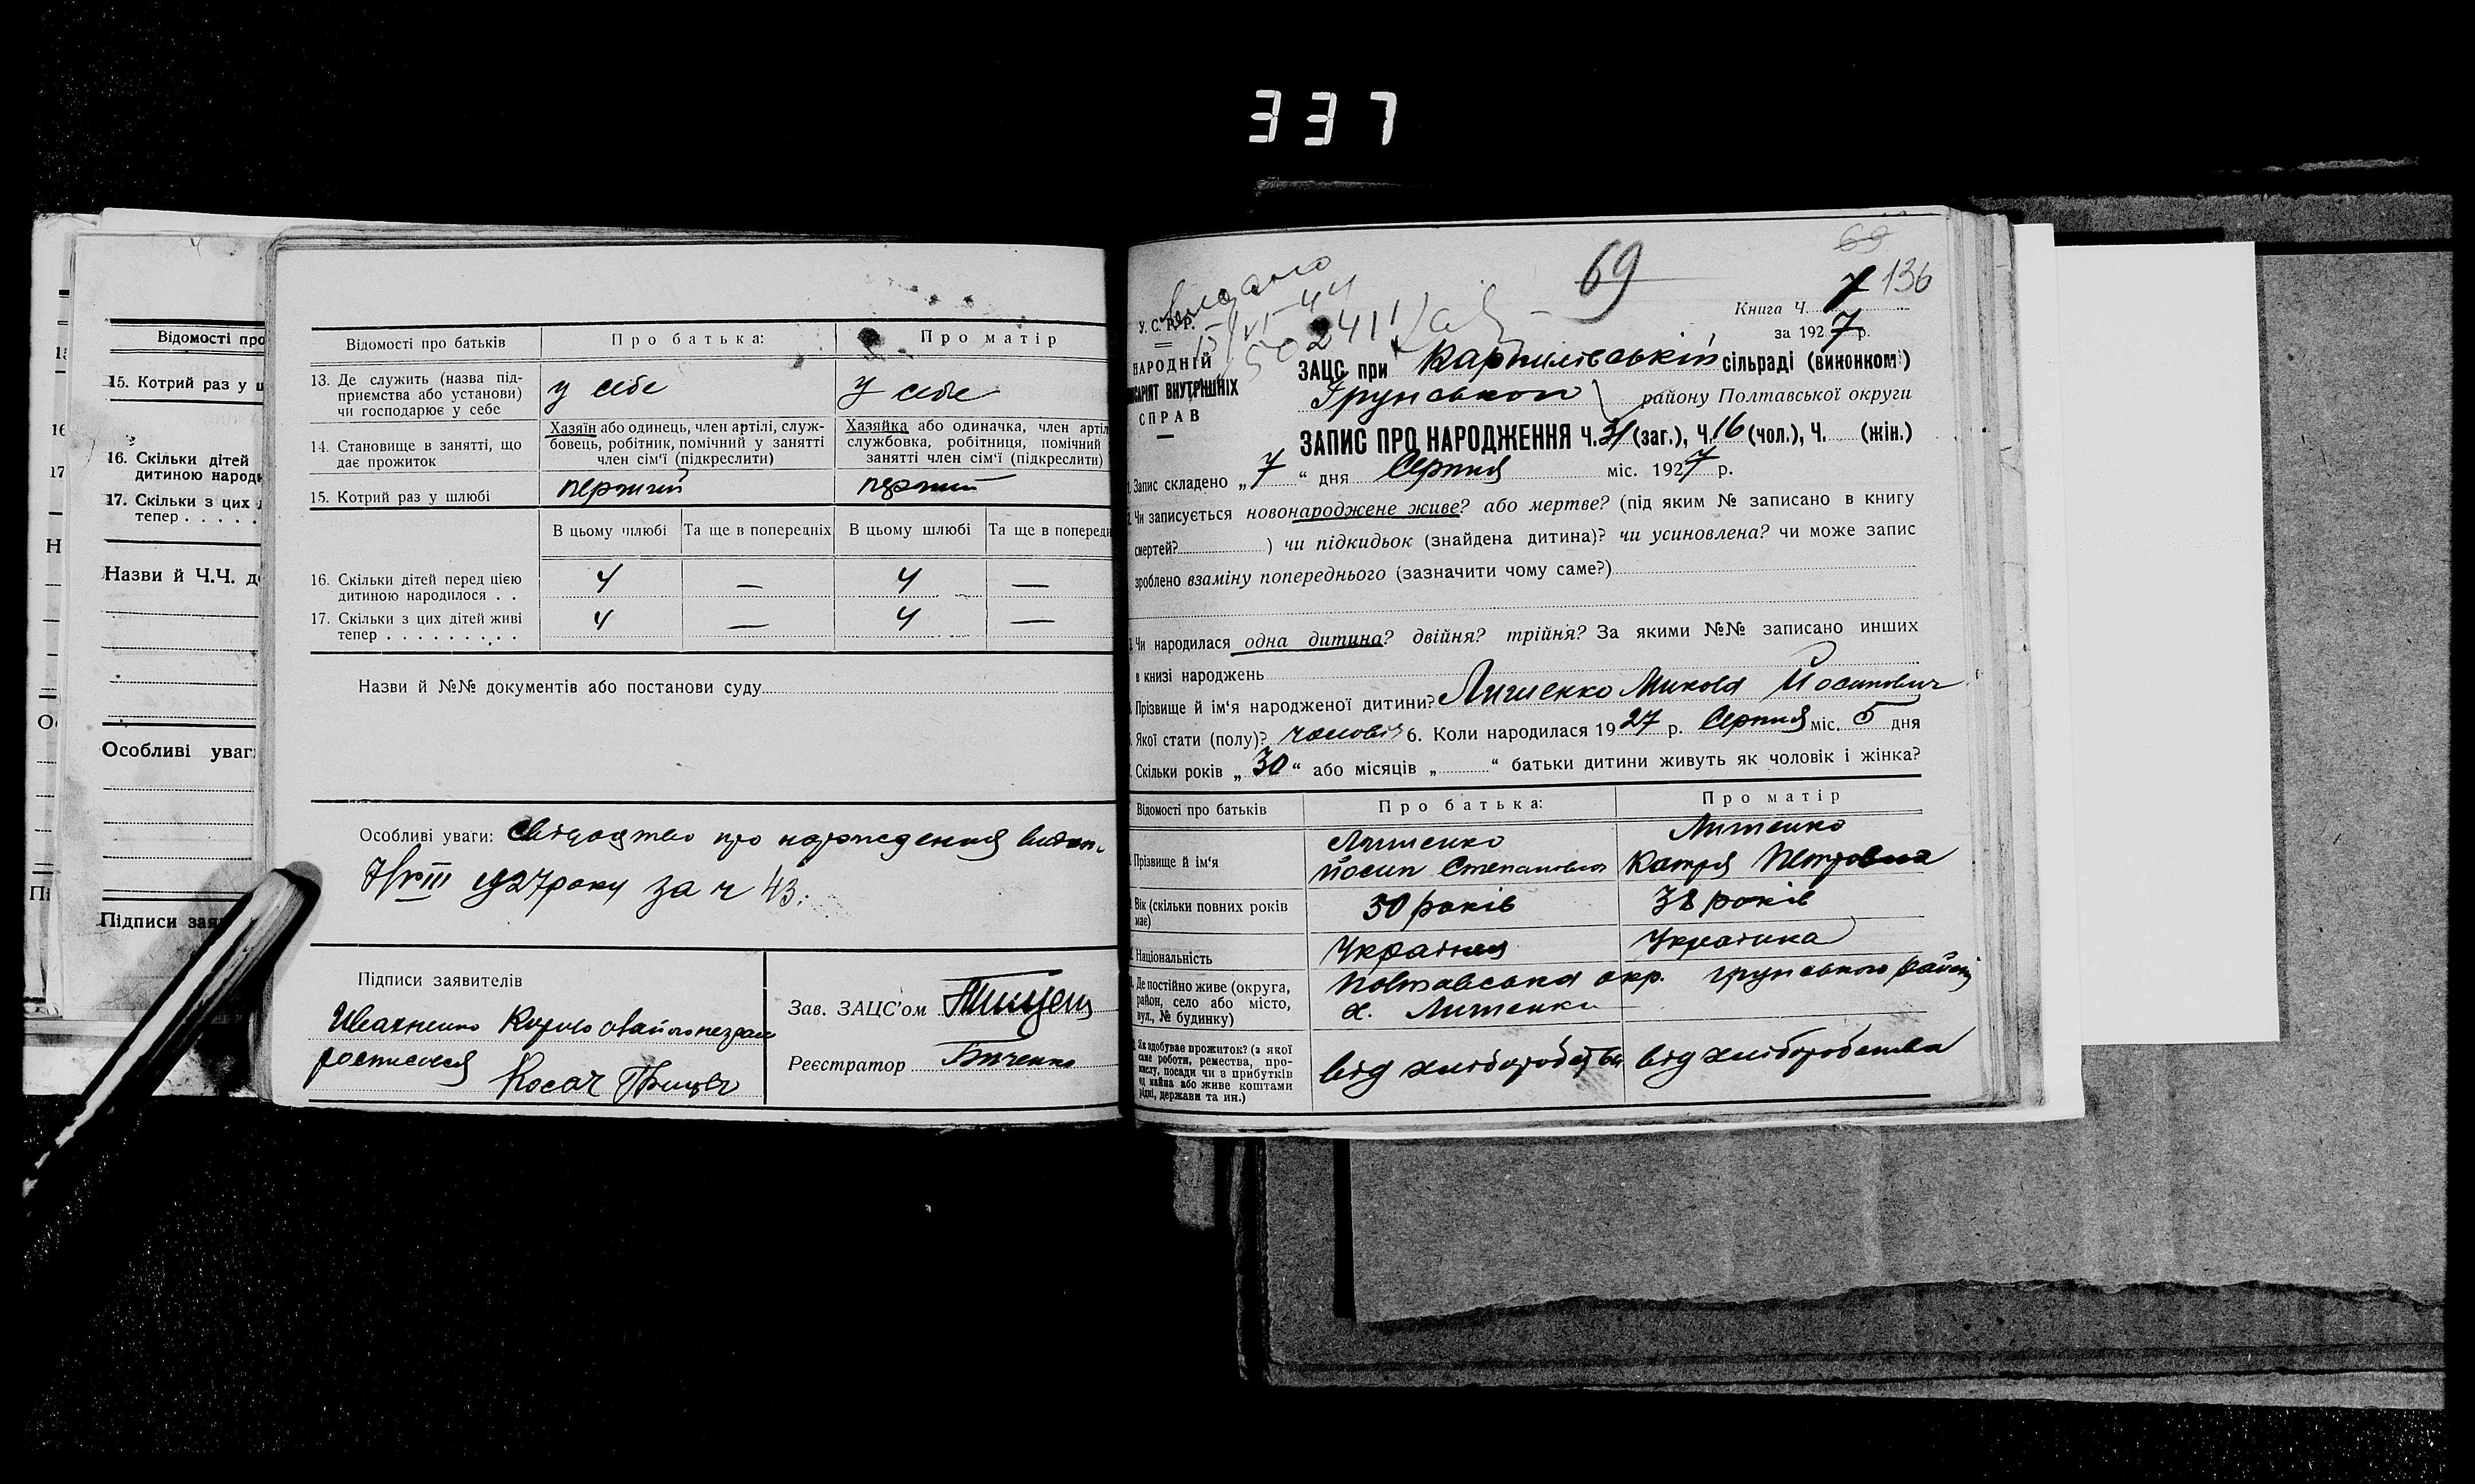 337
Відомості про
15. Котрий раз у ш
16. Скільки дітей
дитиною народи
17. Скільки з цих д
тепер . . . . .
Назви й Ч.Ч. до
Особливі уваг
Підписи зая
Відомості про батьків
Про батька:
Про матір
13. Де служить (назва під-
приємства або установи)
чи господарює у себе
у себе
у себе
14. Становище в занятті, що
дає прожиток
Хазяїн або одинець, член артілі, служ-
бовець, робітник, помічний у занятті
член сім'ї (підкреслити)
Хазяйка або одиначка, член артіл
службовка, робітниця, помічний
занятті член сім'ї (підкреслити)
15. Котрий раз у шлюбі
перший
перший
В цьому шлюбі
Та ще в попередніх
В цьому шлюбі
Та ще в попередн
16. Скільки дітей перед цією
дитиною народилося . .
4 — 4 —
17. Скільки з цих дітей живі
тепер . . . . . . . . .
4 — 4 —
Назви й №№ документів або постанови суду
Особливі уваги: Свідоцтво про народження видан.
7/VIII 1927 року за ч 43.
Підписи заявителів
Зав. ЗАЦС'ом
Реєстратор
Косач
69
69
7 136
Книга Ч.
за 1927 р.
У. С. Р. Р.
НАРОДНІЙ
КОМІСАРІЯТ ВНУТРІШНІХ
СПРАВ
Видано
ЗАЦС при Карпилівській сільраді (виконком)
Грунського району Полтавської округи
ЗАПИС ПРО НАРОДЖЕННЯ Ч. 31 (заг.), Ч. 16 (чол.), Ч. (жін.)
1. Запис складено „7“ дня Серпня міс. 1927 р.
2. Чи записується новонароджене живе? або мертве? (під яким № записано в книгу
смертей? ) чи підкидьок (знайдена дитина)? чи усиновлена? чи може запис
зроблено взаміну попереднього (зазначити чому саме?)
Чи народилася одна дитина? двійня? трійня? За якими №№ записано инших
в книзі народжень
Прізвище й ім'я народженої дитини? Лишенко Микола Йосипович
Якої стати (полу)? чоловіч 6. Коли народилася 1927 р. Серпня міс. 5 дня
Скільки років „30“ або місяців „ “ батьки дитини живуть як чоловік і жінка?
Відомості про батьків
Про батька:
Про матір
Прізвище й ім'я
Лишенко
Йосип Степанович
Лишенко
Катря Петровна
Вік (скільки повних років
має)
50 років
38 років
Національність
Українець
Українка
Де постійно живе (округа,
район, село або місто,
вул., № будинку)
Полтавська окр. Грунського району
х. Лишенки
Як здобуває прожиток? (з якої
саме роботи, ремества, про-
мислу, посади чи з прибутків
од майна або живе коштами
рідні, держави та ин.)
від хліборобства
від хліборобства